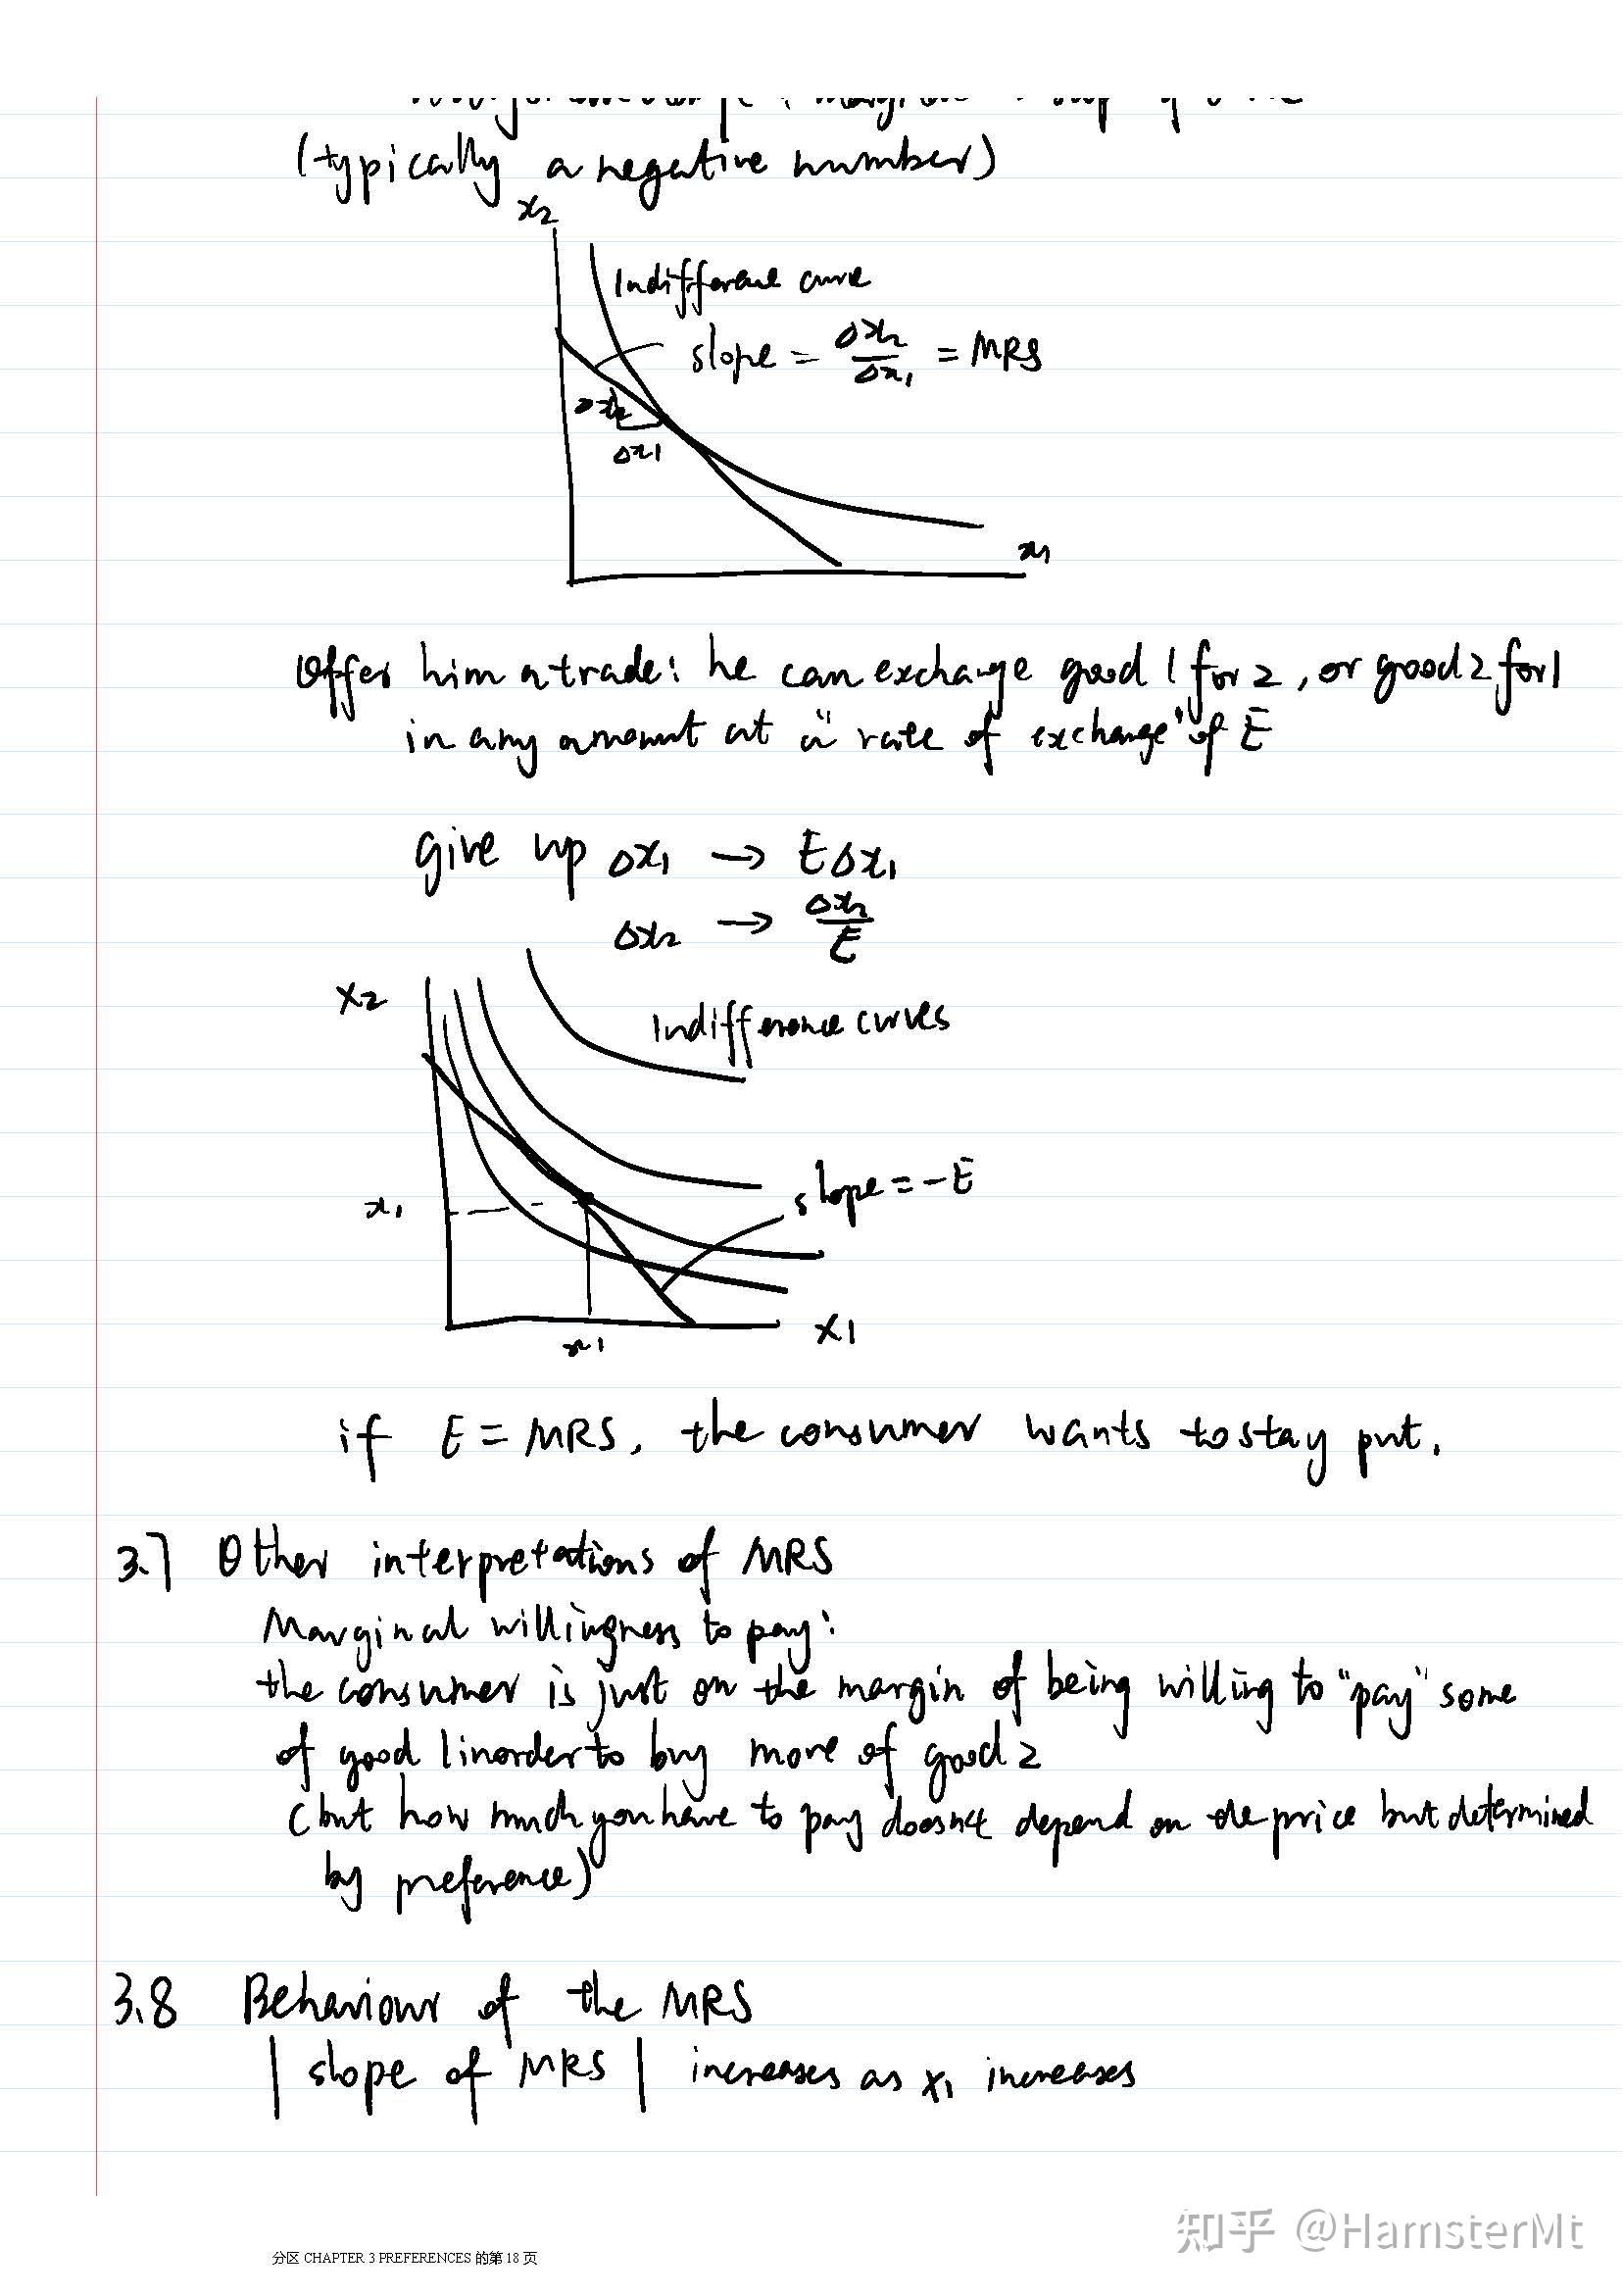 (typically a negative number)
x2
Indifference curve
slope = Δx2/Δx1 = MRS
Δx2
Δx1
x1
Offer him a trade: he can exchange good 1 for 2, or good 2 for 1
in any amount at a "rate of exchange" of E
give up Δx1 → EΔx1
Δx2 → Δx2/E
X2
Indifference curves
slope = -E
x1
x1
X1
if E = MRS, the consumer wants to stay put.
3.7 Other interpretations of MRS
Marginal willingness to pay:
the consumer is just on the margin of being willing to "pay" some
of good 1 in order to buy more of good 2
(but how much you have to pay doesn't depend on the price but determined
by preference)
3.8 Behaviour of the MRS
| slope of MRS | increases as x1 increases
知乎 @HamsterMt
分区 CHAPTER 3 PREFERENCES 的第 18 页